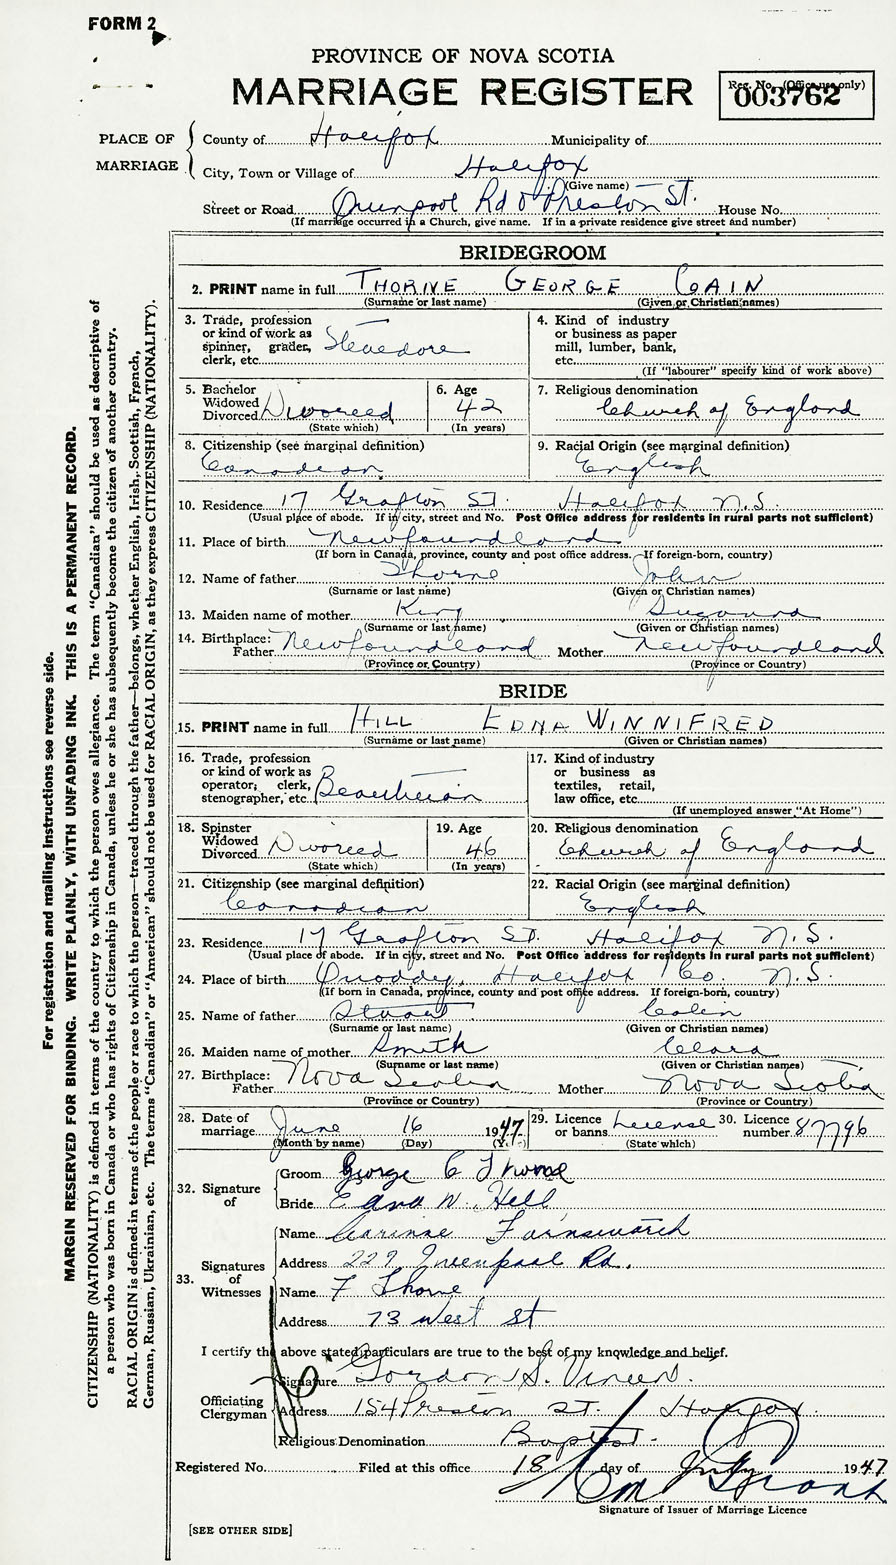 FORM 2
PROVINCE OF NOVA SCOTIA
MARRIAGE REGISTER
Reg. No. (Office use only)
003762
PLACE OF MARRIAGE
County of Halifax Municipality of
City, Town or Village of Halifax
(Give name)
Street or Road Quinpool Rd & Preston St. House No.
(If marriage occurred in a Church, give name. If in a private residence give street and number)
BRIDEGROOM
2. PRINT name in full THORNE GEORGE CAIN
(Surname or last name) (Given or Christian names)
3. Trade, profession or kind of work as spinner, grader, clerk, etc. Stevedore
4. Kind of industry or business as paper mill, lumber, bank, etc.
(If "labourer" specify kind of work above)
5. Bachelor Widowed Divorced Divorced
(State which)
6. Age 42
(In years)
7. Religious denomination Church of England
8. Citizenship (see marginal definition) Canadian
9. Racial Origin (see marginal definition) English
10. Residence 17 Grafton St. Halifax N.S.
(Usual place of abode. If in city, street and No. Post Office address for residents in rural parts not sufficient)
11. Place of birth Newfoundland
(If born in Canada, province, county and post office address. If foreign-born, country)
12. Name of father Thorne John
(Surname or last name) (Given or Christian names)
13. Maiden name of mother King
(Surname or last name) (Given or Christian names)
14. Birthplace: Father Newfoundland Mother Newfoundland
(Province or Country) (Province or Country)
BRIDE
15. PRINT name in full HILL EDNA WINNIFRED
(Surname or last name) (Given or Christian names)
16. Trade, profession or kind of work as operator; clerk, stenographer, etc. Beautician
17. Kind of industry or business as textiles, retail, law office, etc.
(If unemployed answer "At Home")
18. Spinster Widowed Divorced Divorced
(State which)
19. Age 46
(In years)
20. Religious denomination Church of England
21. Citizenship (see marginal definition) Canadian
22. Racial Origin (see marginal definition) English
23. Residence 17 Grafton St. Halifax N.S.
(Usual place of abode. If in city, street and No. Post Office address for residents in rural parts not sufficient)
24. Place of birth Quoddy, Halifax Co. N.S.
(If born in Canada, province, county and post office address. If foreign-born, country)
25. Name of father Stuart Colin
(Surname or last name) (Given or Christian names)
26. Maiden name of mother Smith Clara
(Surname or last name) (Given or Christian names)
27. Birthplace: Father Nova Scotia Mother Nova Scotia
(Province or Country) (Province or Country)
28. Date of marriage June 16 1947
(Month by name) (Day) (Yr.)
29. Licence or banns License
(State which)
30. Licence number 87796
32. Signature of
Groom George C Thorne
Bride Edna W. Hill
33. Signatures of Witnesses
Name Corinne Farnsworth
Address 229 Quinpool Rd.
Name F Thorne
Address 73 West St
I certify the above stated particulars are true to the best of my knowledge and belief.
Officiating Clergyman
Signature Gordon S. Vincent.
Address 154 Preston St. Halifax.
Religious Denomination Baptist.
Registered No. Filed at this office 18 day of July 1947
Signature of Issuer of Marriage Licence
[SEE OTHER SIDE]
For registration and mailing instructions see reverse side.
MARGIN RESERVED FOR BINDING. WRITE PLAINLY, WITH UNFADING INK. THIS IS A PERMANENT RECORD.
CITIZENSHIP (NATIONALITY) is defined in terms of the country to which the person owes allegiance. The term "Canadian" should be used as descriptive of
a person who was born in Canada or who has rights of Citizenship in Canada, unless he or she has subsequently become the citizen of another country.
RACIAL ORIGIN is defined in terms of the people or race to which the person—traced through the father—belongs, whether English, Irish, Scottish, French,
German, Russian, Ukrainian, etc. The terms "Canadian" or "American" should not be used for RACIAL ORIGIN, as they express CITIZENSHIP (NATIONALITY).